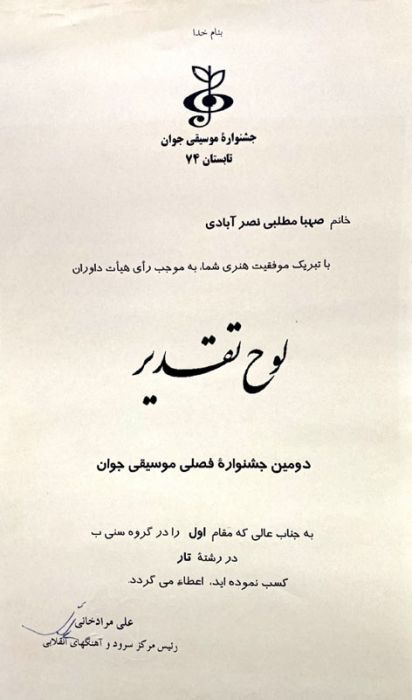 بنام خدا
جشنوارهٔ موسیقی جوان
تابستان ۷۴
خانم صهبا مطلبی نصر آبادی
با تبریک موفقیت هنری شما، به موجب رأی هیأت داوران
لوح تقدیر
دومین جشنوارهٔ فصلی موسیقی جوان
به جناب عالی که مقام اول را در گروه سنی ب
در رشتهٔ تار
کسب نموده اید، اعطاء می گردد.
علی مرادخانی
رئیس مرکز سرود و آهنگهای انقلابی